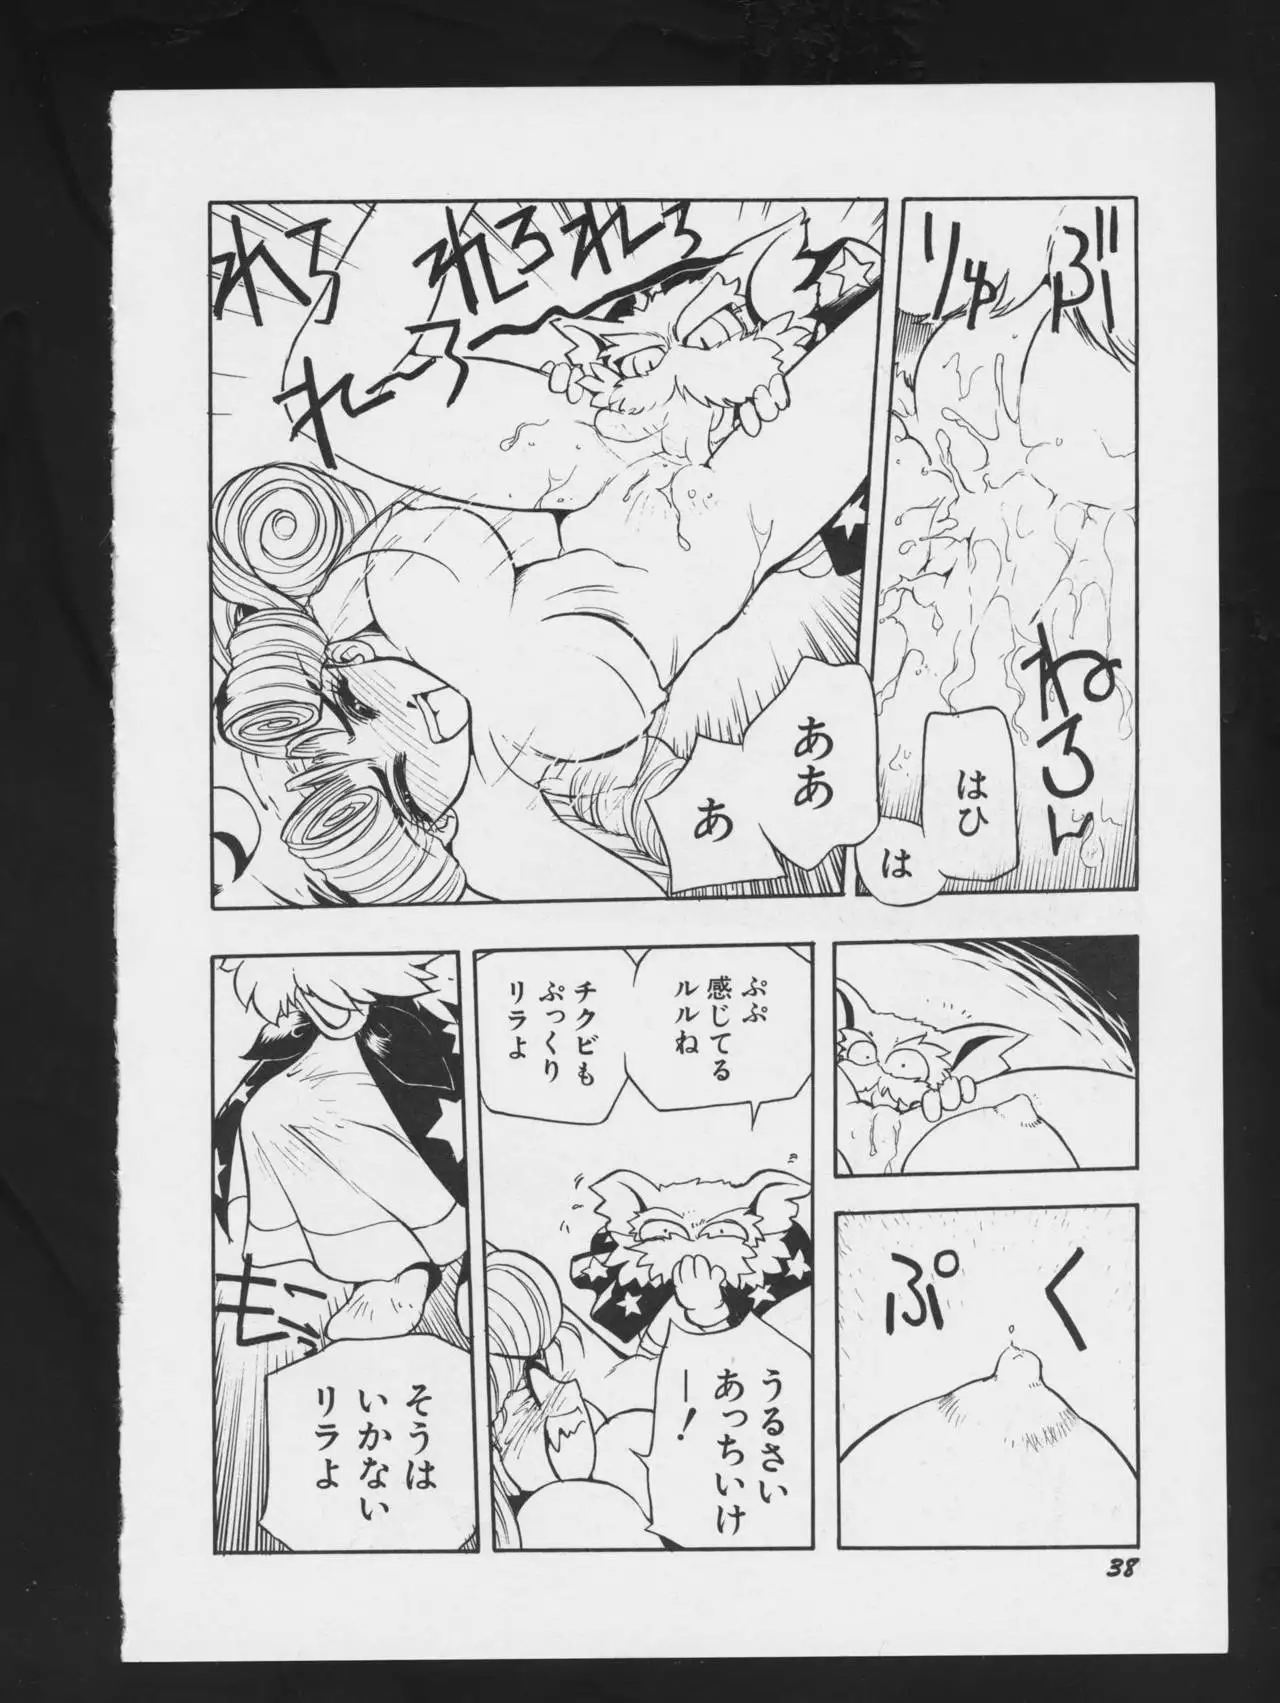 ぶ
りゅ
ねろん
はひ
は
れろれろ
れろ
れ〜ろ
ああ
あ
ぷ
く
ぷぷ
感じてる
ルルね
チクビも
ぷっくり
リラよ
うるさい
あっちいけ
ー!
そうは
いかない
リラよ
38